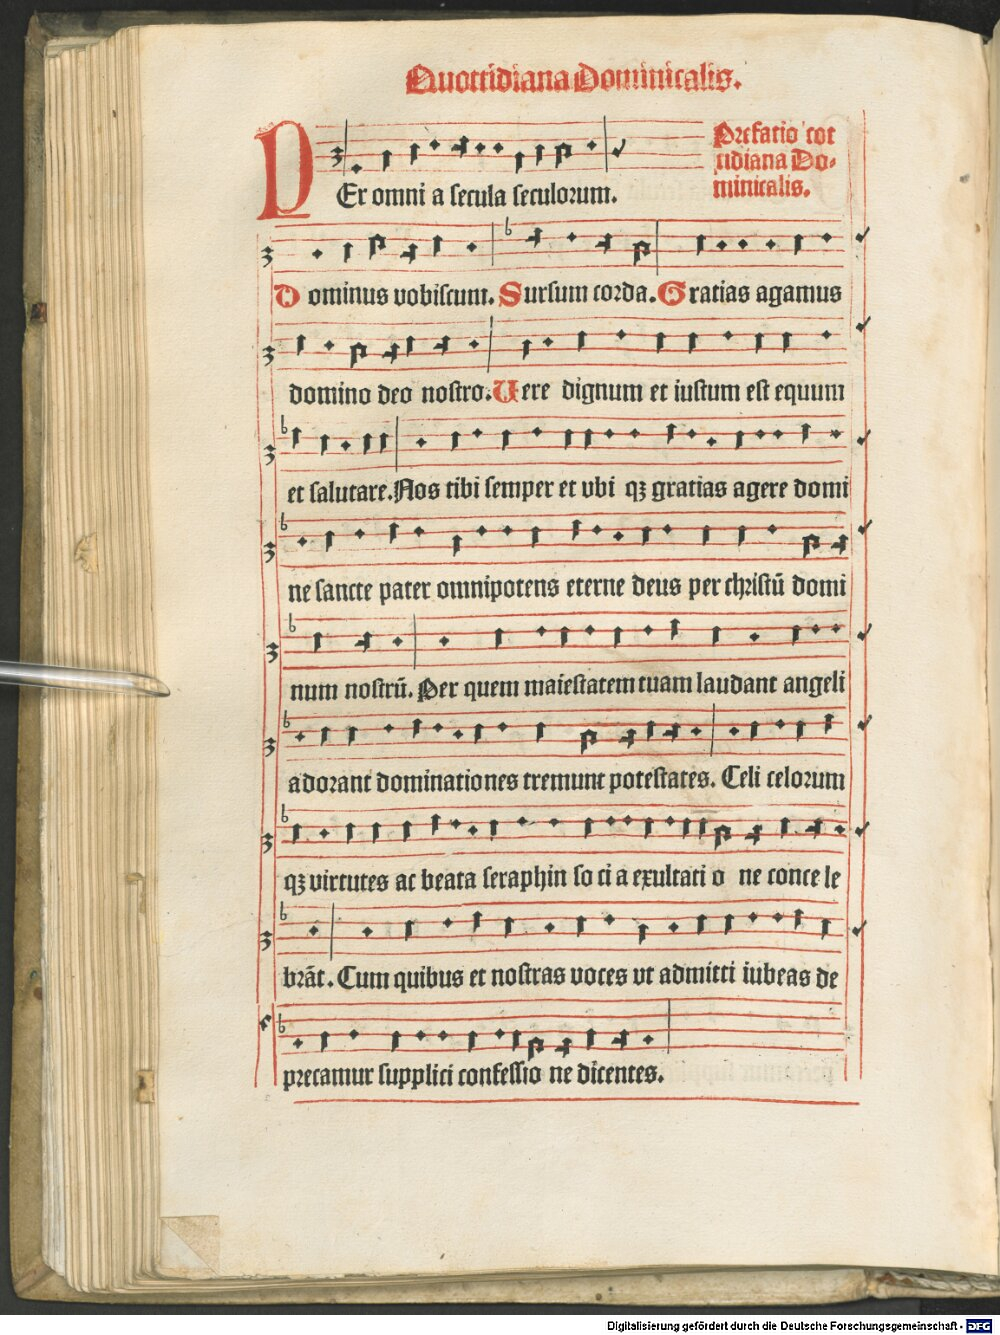 Quottidiana Dominicalis.
Prefatio cot
tidiana Do-
minicalis.
PEr omni a secula seculorum.
Dominus vobiscum. Sursum corda. Gratias agamus
domino deo nostro. Uere dignum et iustum est equum
et salutare. Nos tibi semper et vbi qꝫ gratias agere domi
ne sancte pater omnipotens eterne deus per christū domi
num nostrū. Per quem maiestatem tuam laudant angeli
adorant dominationes tremunt potestates. Celi celorum
qꝫ virtutes ac beata seraphin so ci a exultati o ne conce le
brāt. Cum quibus et nostras voces vt admitti iubeas de
precamur supplici confessio ne dicentes.
Digitalisierung gefördert durch die Deutsche Forschungsgemeinschaft - DFG